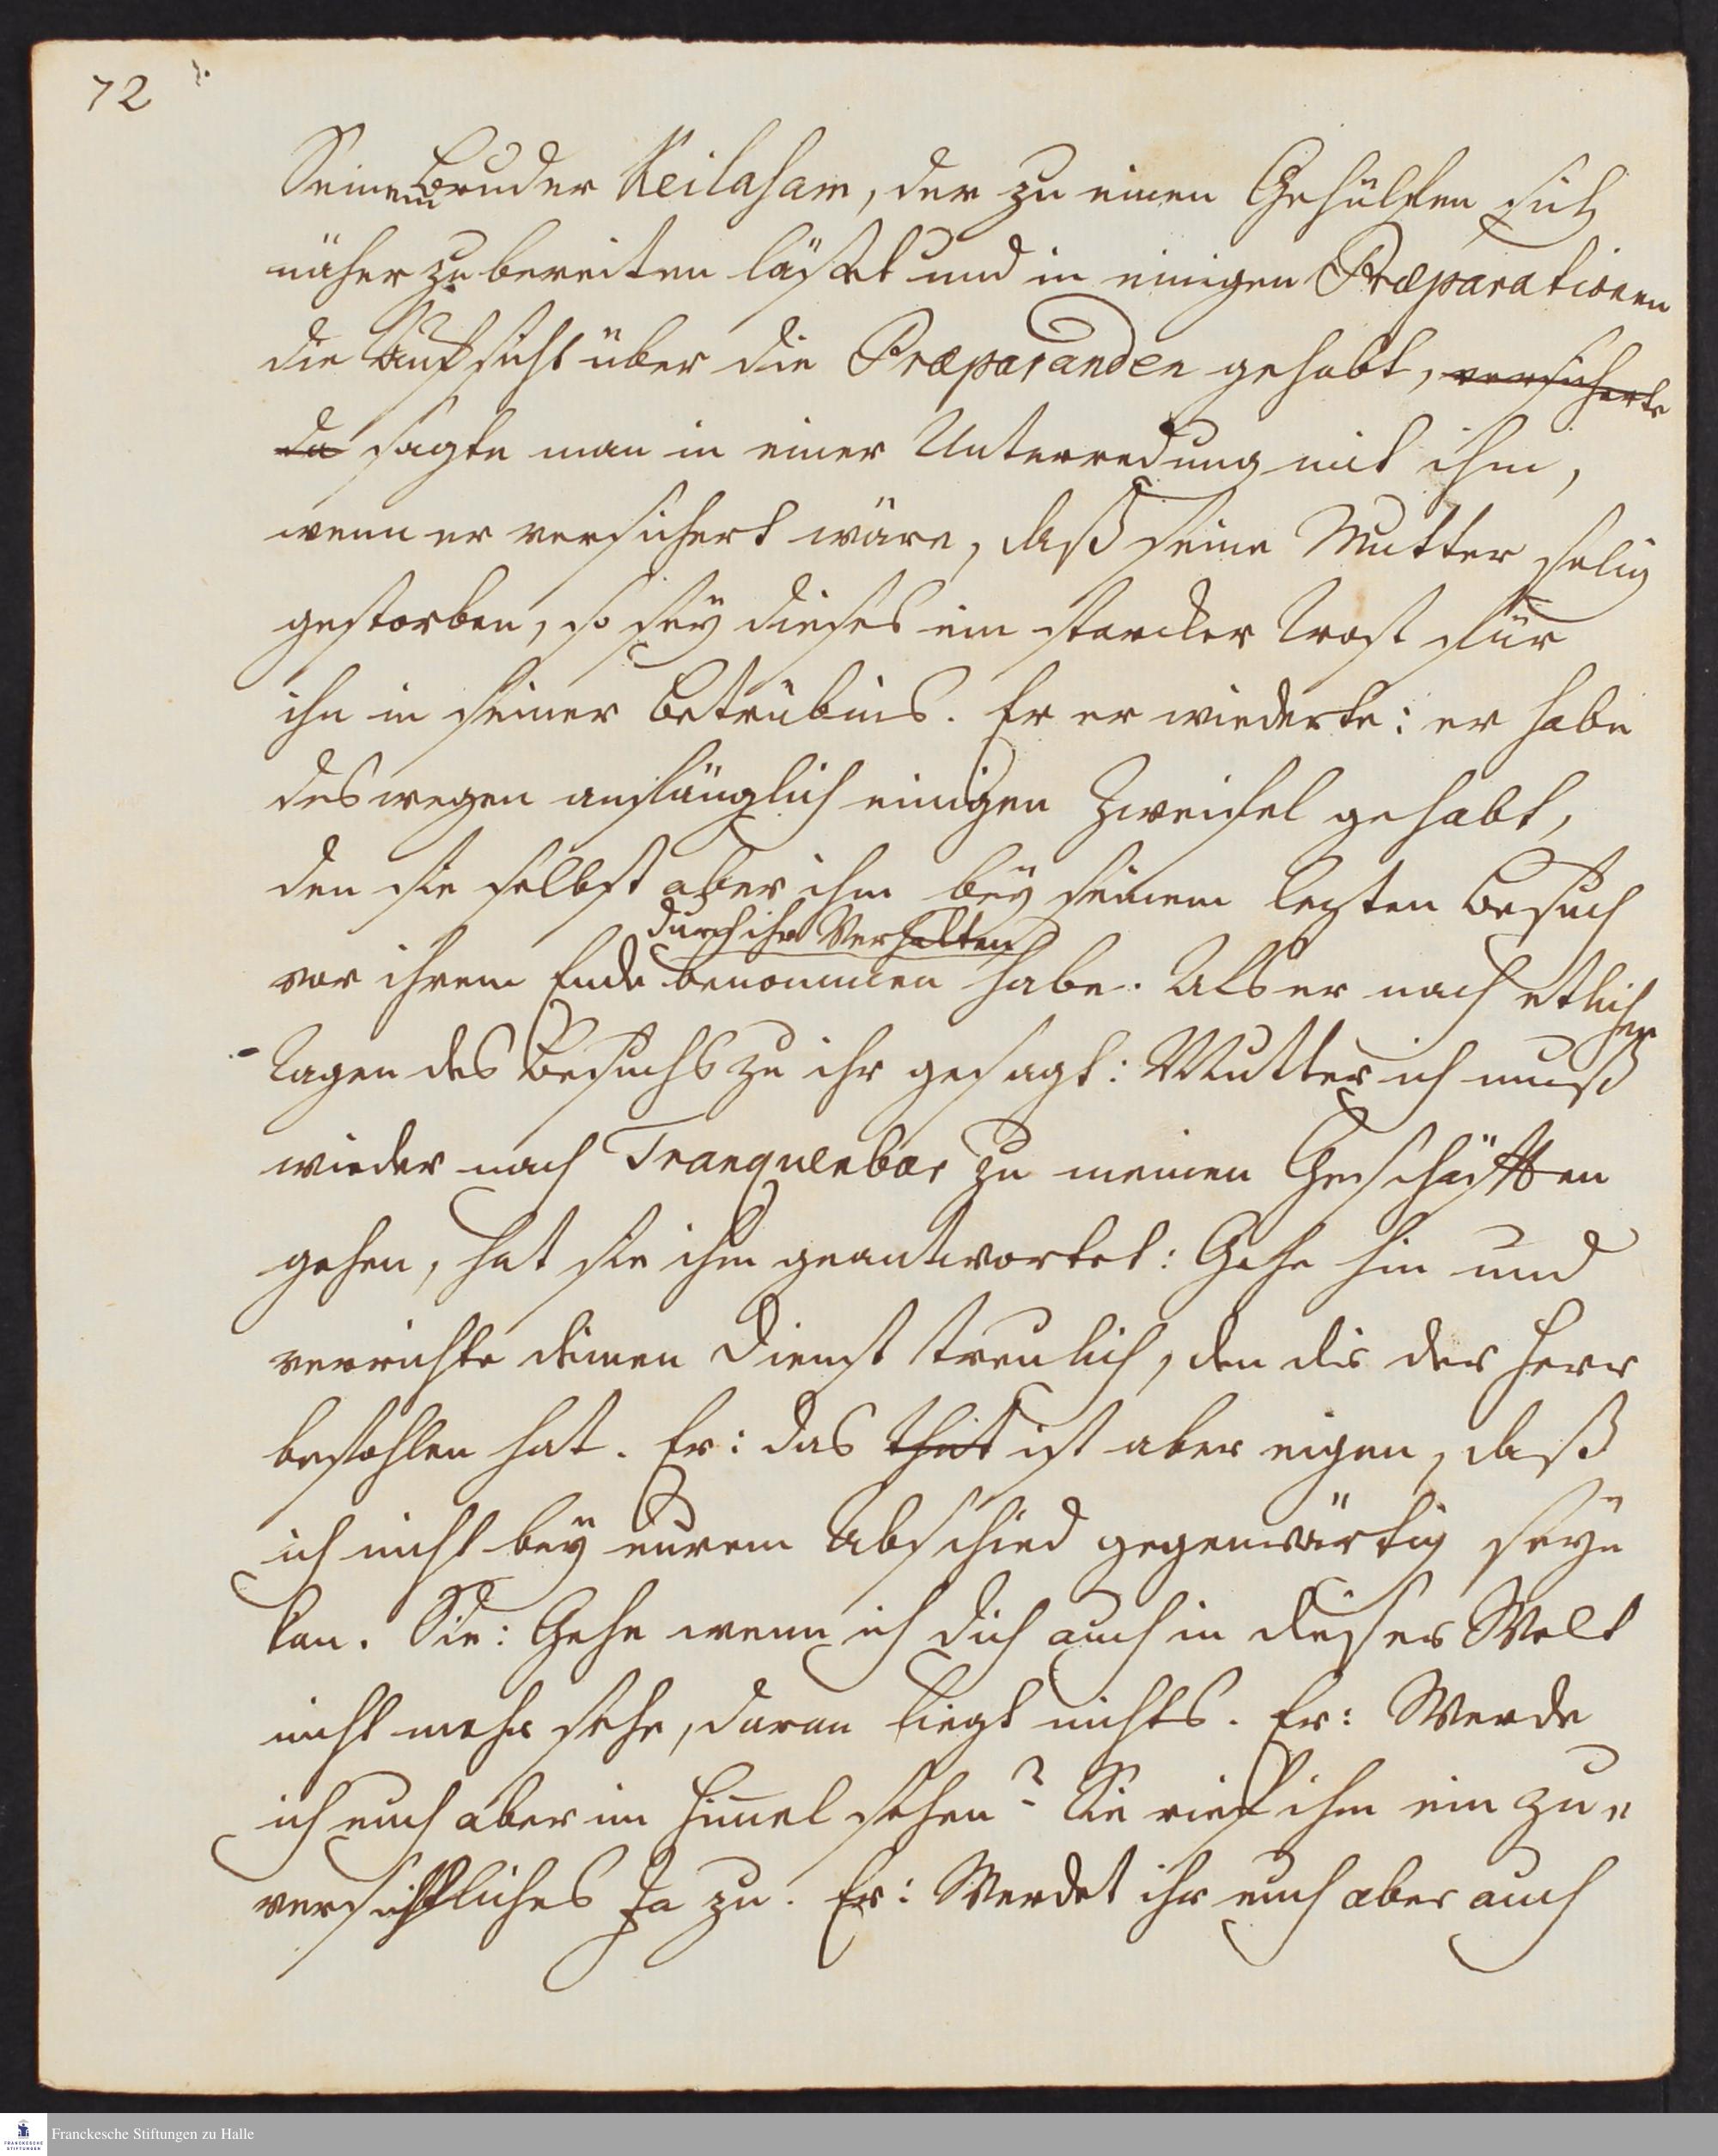 72
Seinem Bruder Keilasam, der zu einen Gehülfen sich
näher zubereiten lässet und in einigen Præparationen
die Aufsicht über die Præparanden gehabt, versicherte
da sagte man in einer Unterredung mit ihm,
wenn er versichert wäre, daß seine Mutter selig
gestorben, so sey dieses ein starcker Trost für
ihn in seiner Betrübnis. Er erwiederte: er habe
deswegen anfänglich einigen Zweifel gehabt,
den sie selbst aber ihm bey seinem lezten Besuch
durch ihr Verhalten
vor ihrem Ende benommen habe. Als er nach etlichen
Tagen des Besuchs zu ihr gesagt: Mutter ich muß
wieder nach Tranquenbar zu meinen Geschäfften
gehen, hat sie ihm geantwortet: Gehe hin und
verrichte deinen Dienst treulich, den dir der Herr
befohlen hat. Er: das thut ist aber eigen, daß
ich nicht bey eurem Abschied gegenwärtig seyn
kan. Sie: Gehe wenn ich dich auch in dieser Welt
nicht mehr sehe, daran liegt nichts. Er: Werde
ich euch aber im Himel sehen? Sie rief ihm ein zu„
versichtliches Ja zu. Er: Werdet ihr euch aber auch
Franckesche Stiftungen zu Halle
FRANCKESCHE
STIFTUNGEN